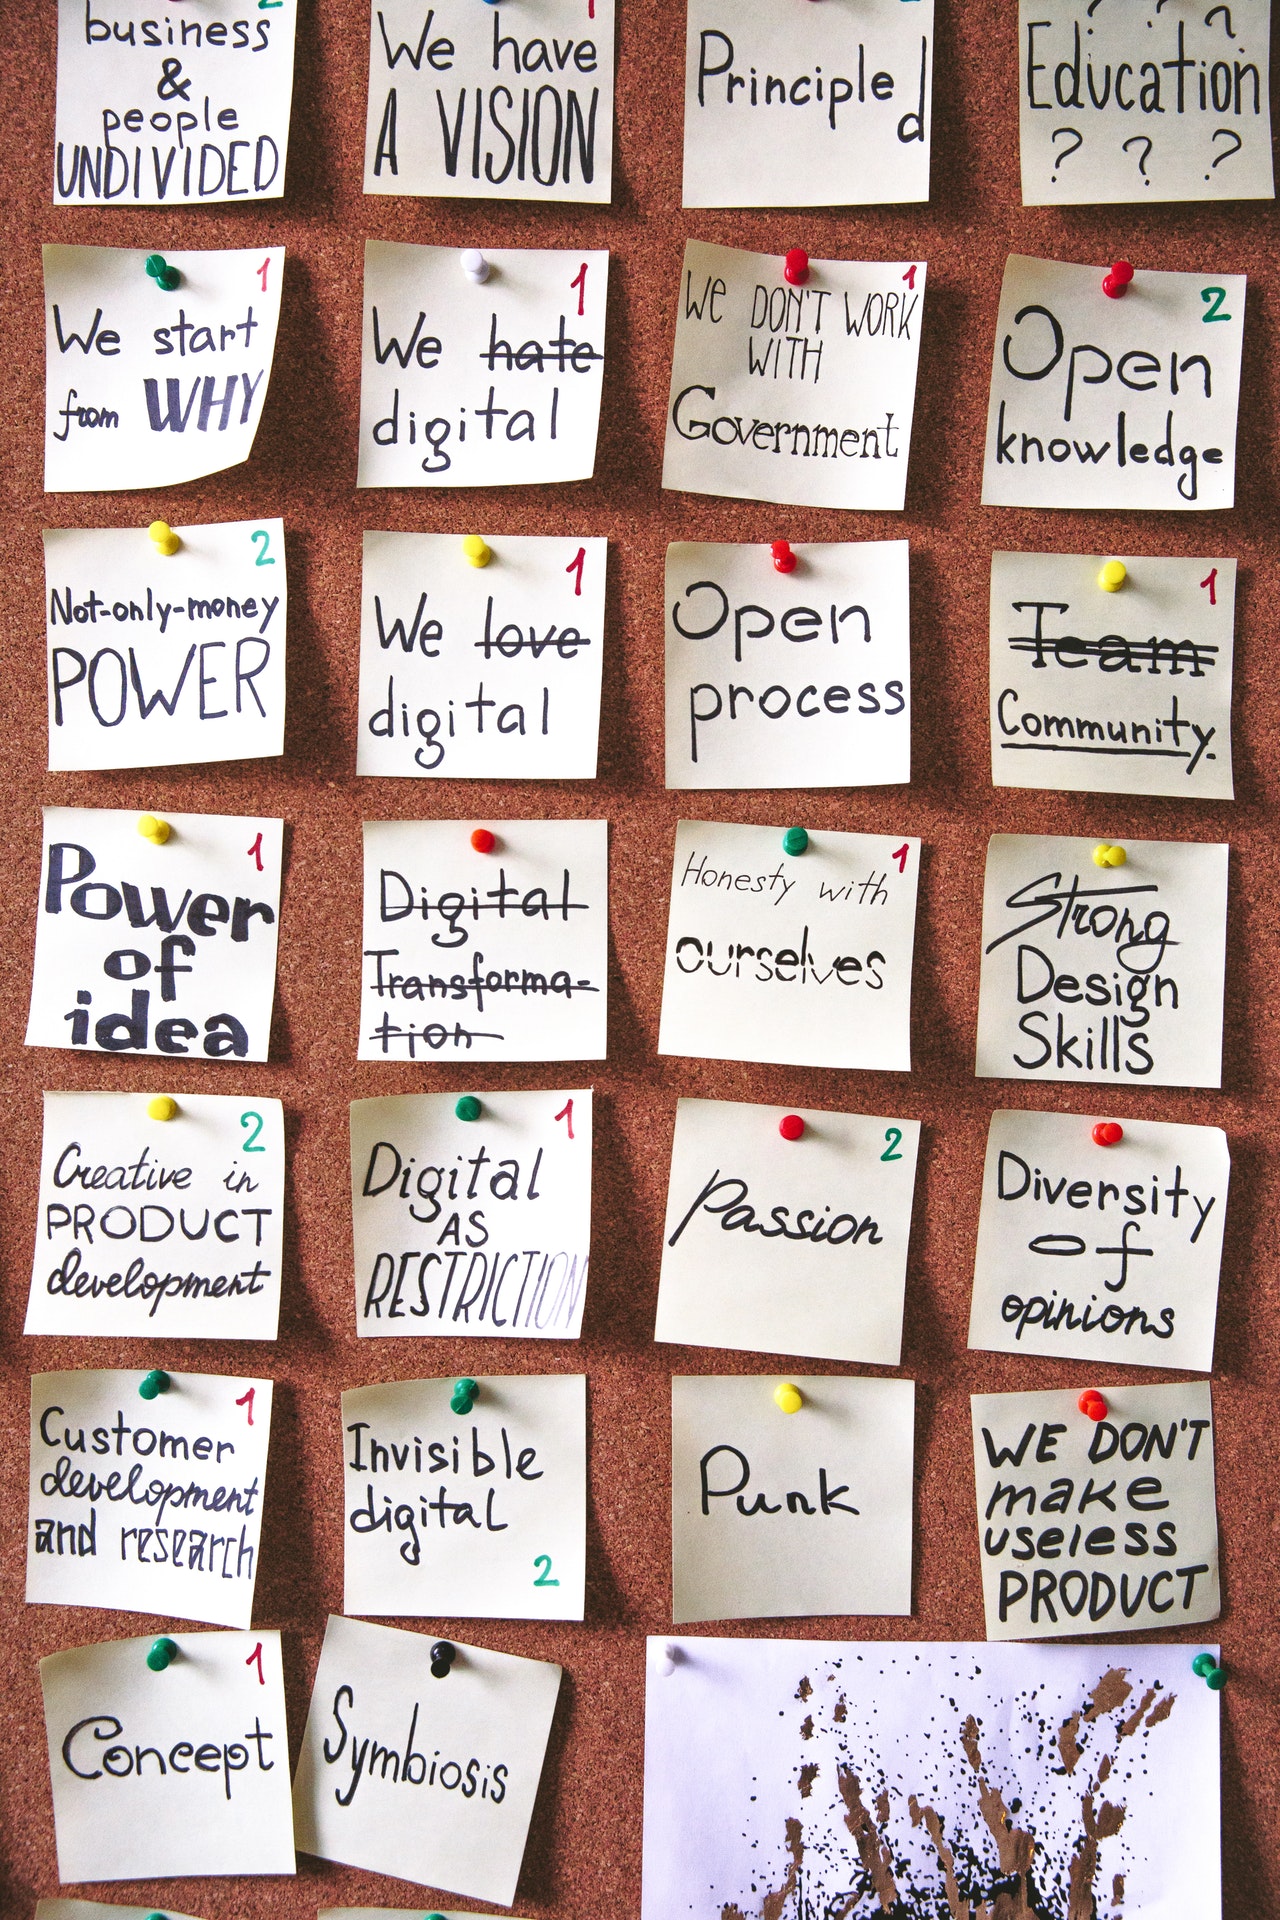 2
business
&
people
UNDIVIDED
1
We have
A VISION
Principled
? ? ?
Education
? ? ?
1
We start
from WHY
1
We hate
digital
1
WE DON'T WORK
WITH
Government
2
Open
knowledge
2
Not-only-money
POWER
1
We love
digital
Open
process
1
Team
Community.
1
Power
of
idea
Digital
Transforma-
tion
1
Honesty with
ourselves
Strong
Design
Skills
2
Creative in
PRODUCT
development
1
Digital
AS
RESTRICTION
2
Passion
Diversity
of
opinions
1
Customer
development
and research
Invisible
digital
2
Punk
WE DON'T
make
useless
PRODUCT
1
Concept
Symbiosis